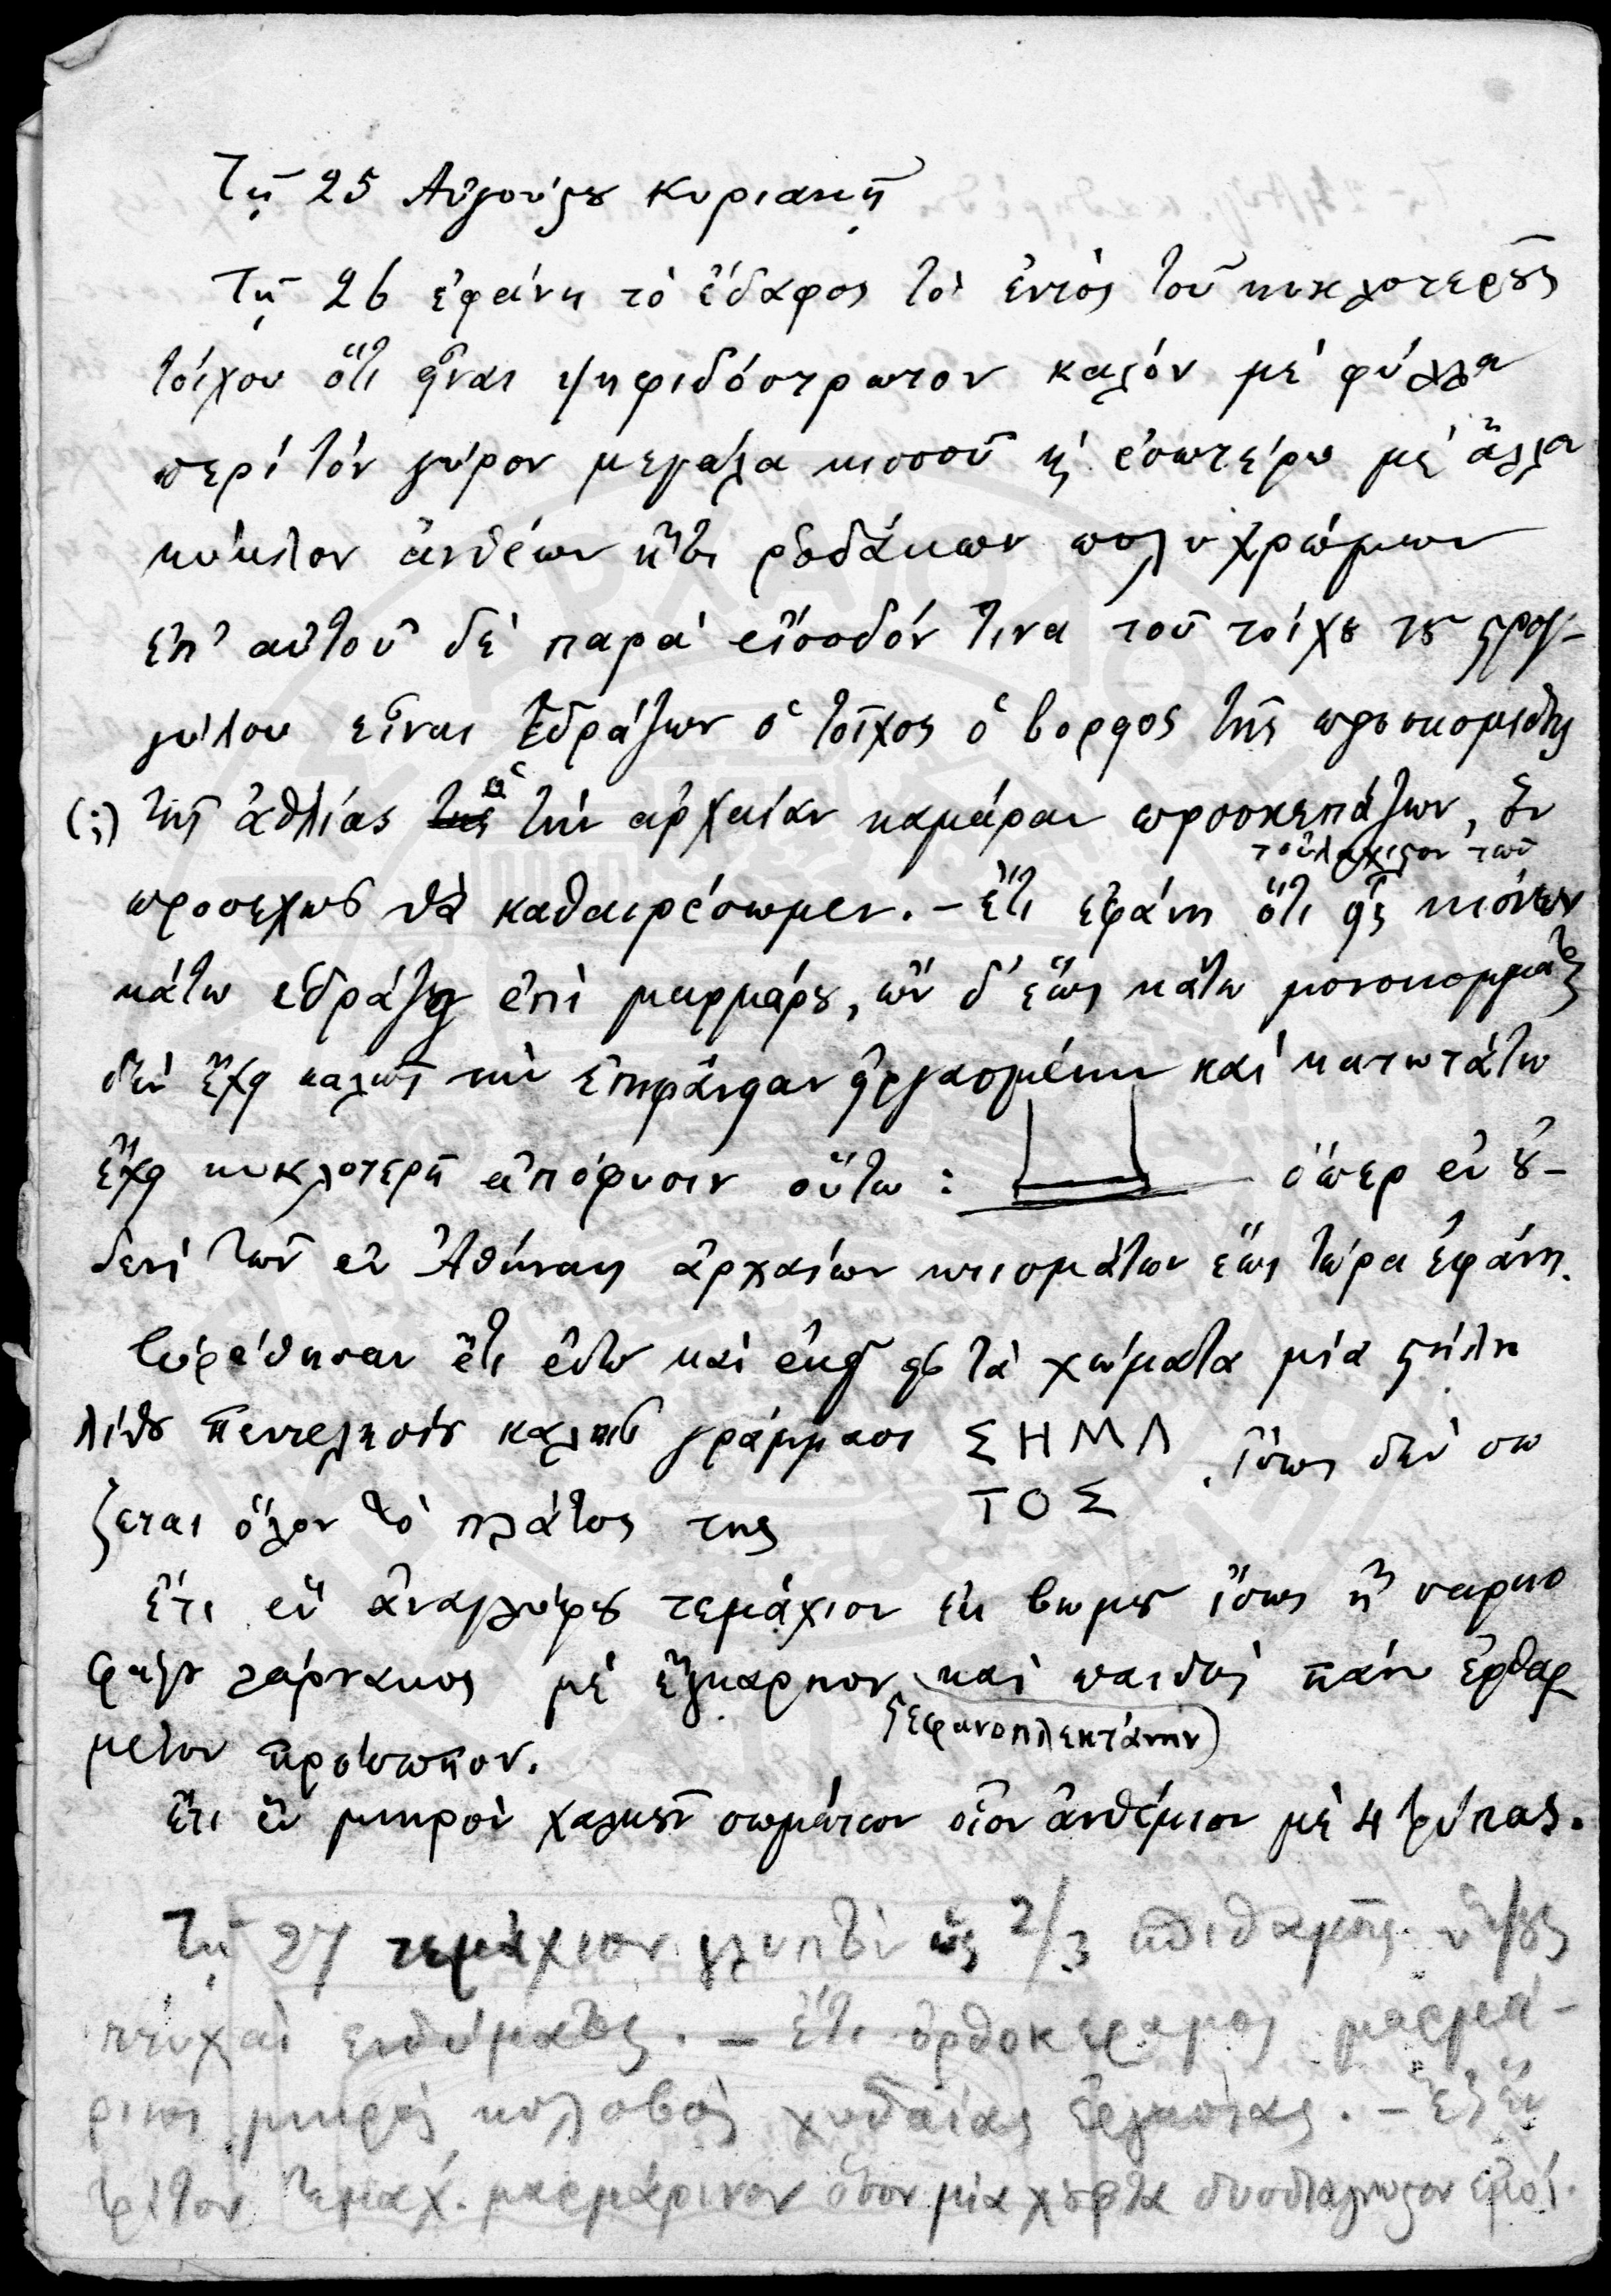 Τῇ 25 Αὐγούστου Κυριακῇ
Τῇ 26 ἐφάνη τὸ ἔδαφος τὸ ἐντὸς τοῦ κυκλοτεροῦς
τοίχου ὅτι εἶναι ψηφιδόστρωτον καλόν μὲ φύλλα
περὶ τὸν γύρον μεγάλα κισσοῦ κὶ ἐσωτέρω μὲ ἄλλα
κύκλον ἀνθέων ἤτοι ῥοδάκων πολυχρώμων
ἐπ' αὐτοῦ δὲ παρὰ εἴσοδόν τινα τοῦ τοίχου τοῦ στρογ-
γύλου εἶναι ἑδράζων ὁ τοῖχος ὁ βορρᾶς τῆς προσκομιδῆς
(;) τῆς ἀθλίας τὴν ἀρχαίαν καμάραν προσκεπάζων, ὃν
προσεχῶς θὰ καθαιρέσωμεν. - ἔτι ἐφάνη ὅτι εἷς τοὐλάχιστον τῶν κιόνων
κάτω ἑδράζει ἐπὶ μαρμάρου, ὢν δ' ἕως κάτω μονοκόμματος
δὲν ἔχει καλῶς τὴν ἐπιφάνειαν εἰργασμένην καὶ κατωτάτω
ἔχει κυκλοτερῆ ἀπόφυσιν οὕτω : ὅπερ ἐν οὐ-
δενὶ τῶν ἐν Ἀθήναις ἀρχαίων κτισμάτων ἕως τώρα ἐφάνη.
Εὑρέθησαν ἔτι ἐδῶ καὶ ἐκεῖ εἰς τὰ χώματα μία στήλη
λίθου Πεντελησίου καλοῖς γράμμασι ΣΗΜΑ . ἴσως δὲν σώ
ΤΟΣ
ζεται ὅλον τὸ πλάτος της
ἔτι ἓν ἀναγλύφου τεμάχιον ἐκ βωμοῦ ἴσως ἢ σαρκο
φάγου λάρνακος μὲ ἔγκαρπον καὶ παιδὸς πάνυ ἐφθαρ
στεφανοπλεκτάνην)
μένον πρόσωπον.
ἔτι ἓν μικρὸν χαλκοῦν σωμάτιον οἷον ἀνθέμιον μὲ 4 τρύπας.
Τῇ 27 τεμάχιον γλυπτὸν ὡς 2/3 σπιθαμῆς ὕψους
πτυχαὶ ἐνδύματος. - ἔτι ὀρθοκέραμος μαρμά-
ρινος μικρὸς κολοβὸς χυδαίας ἐργασίας. - ἔτι ἓν
τρίτον τεμάχ. μαρμάρινον ὅσον μία χοῦφτα δυσδιάγνωστον ἐμοί.